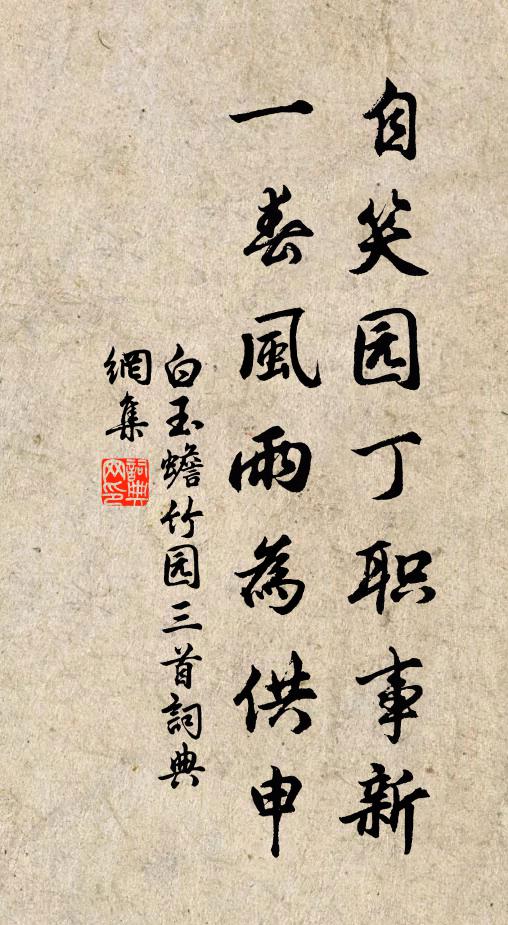 自笑园丁职事新
一春風雨為供申
白玉蟾竹园三首詞典
網集
詞典
网印